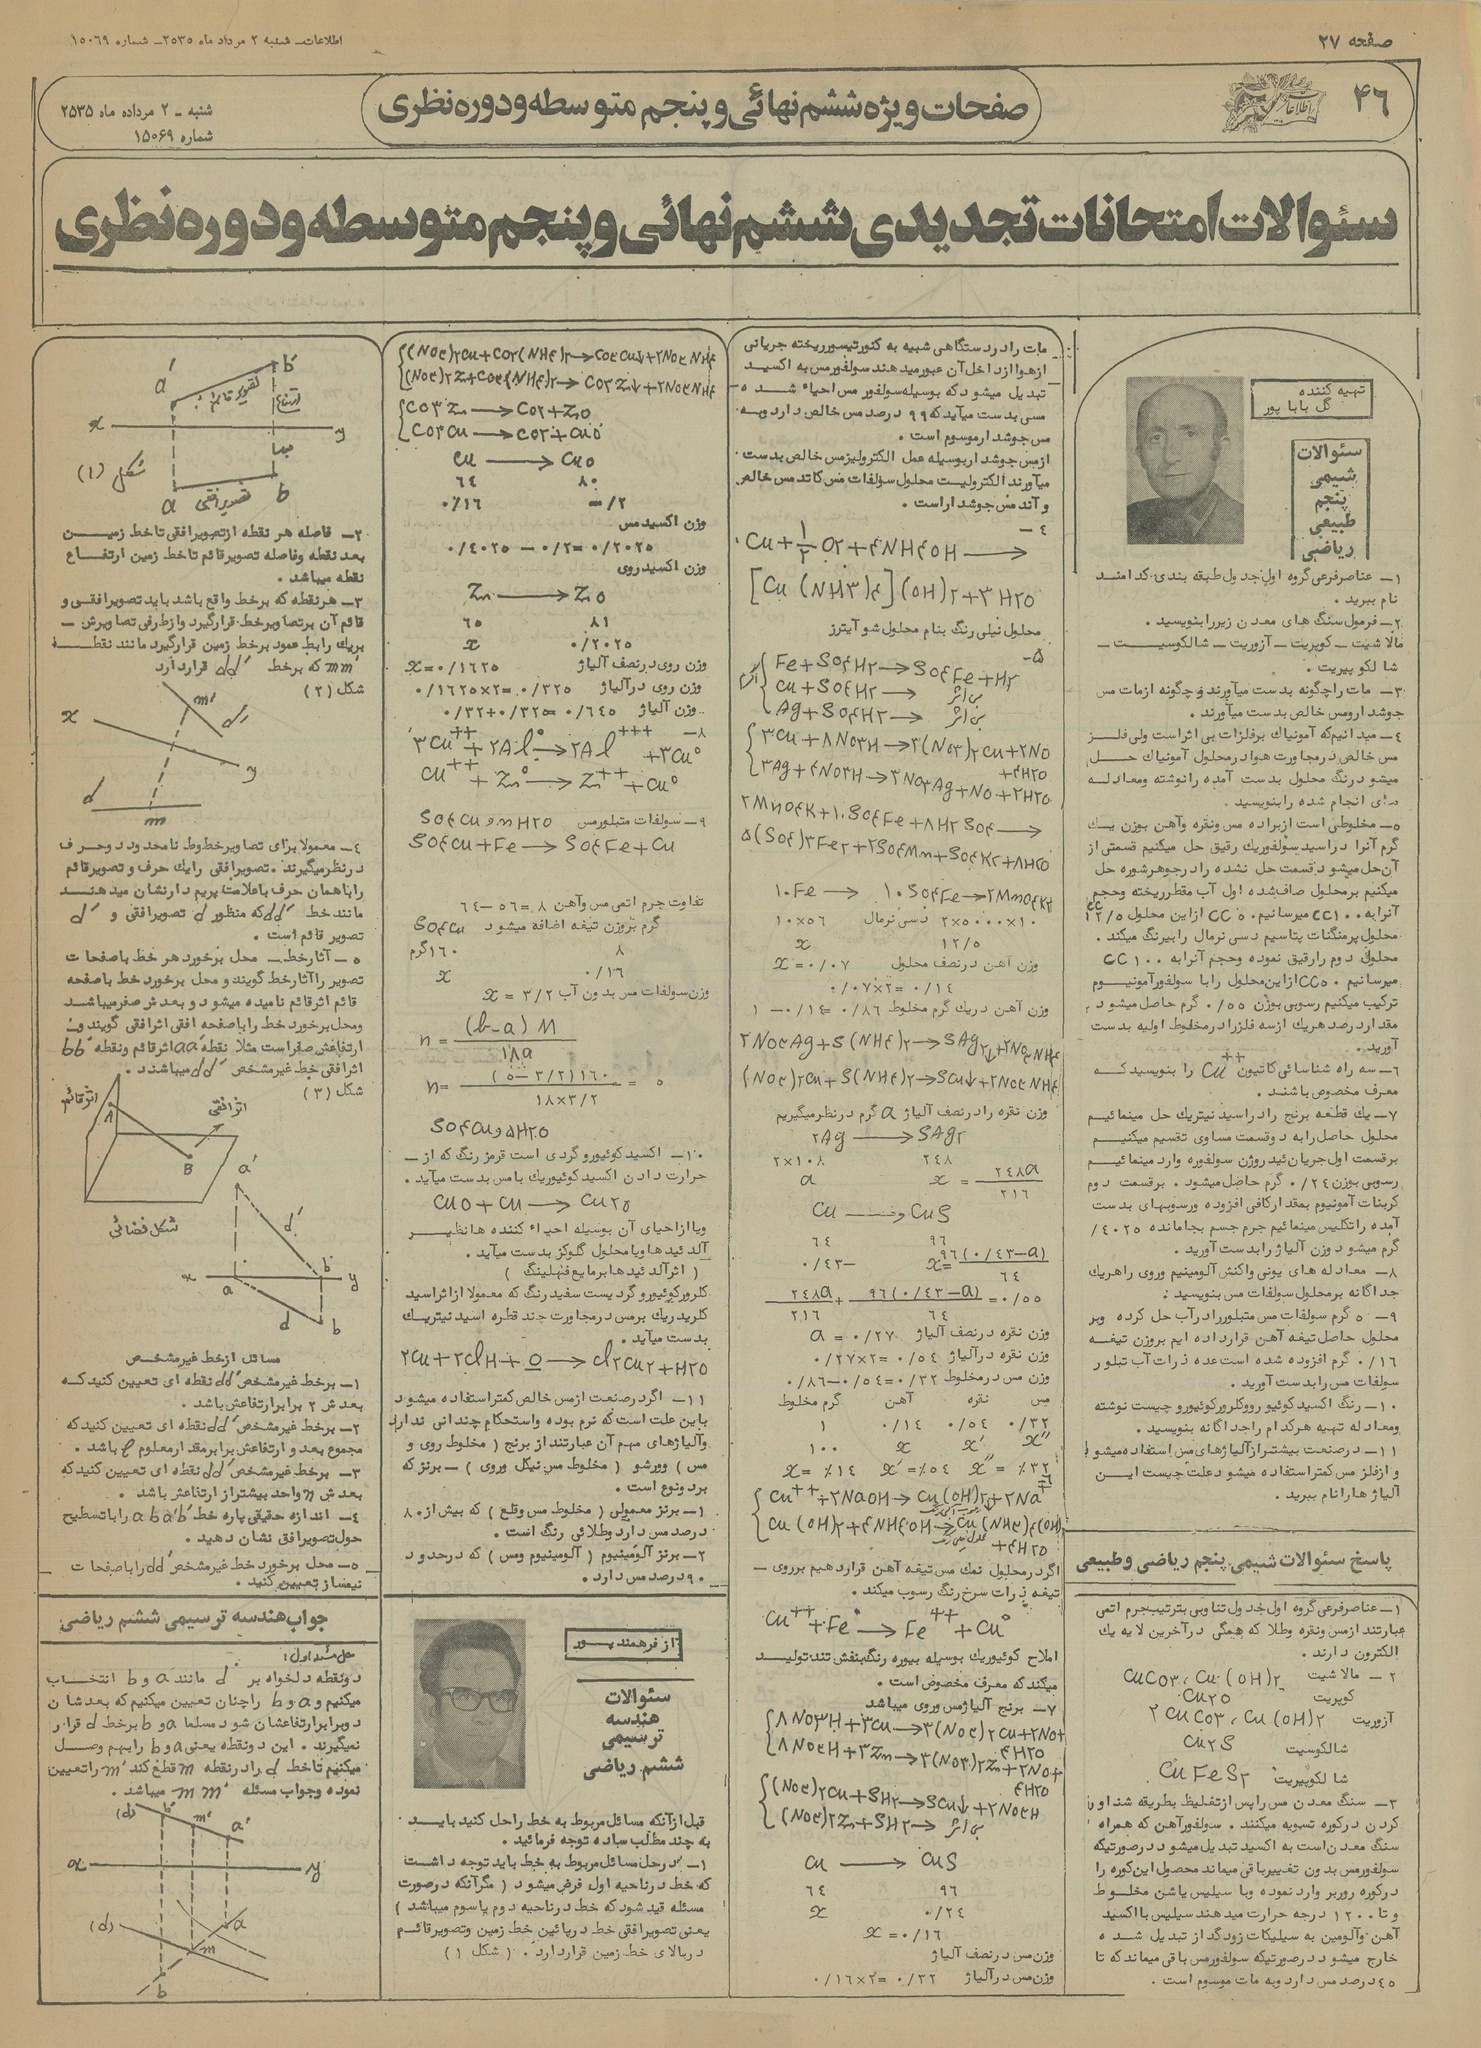 صفحه ۲۷
اطلاعات ـ شنبه ۲ مرداد ماه ۲۵۳۵ ـ شماره ۱۵۰۶۹
۴۶
صفحات ویژه ششم نهائی و پنجم متوسطه و دوره نظری
شنبه ـ ۲ مرداده ماه ۲۵۳۵
شماره ۱۵۰۶۹
سئوالات امتحانات تجدیدی ششم نهائی و پنجم متوسطه و دوره نظری
تهیه کننده
گل بابا پور
سئوالات
شیمی
پنجم
طبیعی
ریاضی
۱ـ عناصر فرعی گروه اول جدول طبقه بندی کدامند
نام ببرید .
۲ـ فرمول سنگ های معدن زیر را بنویسید .
مالاشیت ـ کوپریت ـ آزوریت ـ شالکوسیت ـ
شالکوپیریت .
۳ـ مات را چگونه بدست میآورند و چگونه از مات مس
جوشدار و مس خالص بدست میآورند .
۴ـ میدانیم که آمونیاک بر فلزات بی اثر است ولی فلز
مس خالص در مجاورت هوا در محلول آمونیاک حل
میشود رنگ محلول بدست آمده را نوشته و معادله
های انجام شده را بنویسید .
۵ـ مخلوطی است از براده مس و نقره و آهن بوزن یک
گرم آنرا در اسید سولفوریک رقیق حل میکنیم قسمتی از
آن حل میشود قسمت حل نشده را در جوهر شوره حل
میکنیم بر محلول صاف شده اول آب مقطر ریخته و حجم
آنرا به ۱۰۰CC میرسانیم . ۵۰ CC از این محلول ۱۲/۵ CC
محلول پرمنگنات پتاسیم دسی نرمال را بیرنگ میکند .
محلول دوم را رقیق نموده و حجم آنرا به ۱۰۰ CC
میرسانیم . ۵۰CC از این محلول را با سولفور آمونیوم
ترکیب میکنیم رسوبی بوزن ۰/۵۵ گرم حاصل میشود
مقدار درصد هر یک از سه فلز را در مخلوط اولیه بدست
آورید .
۶ـ سه راه شناسائی کاتیون Cu++ را بنویسید که
معرف مخصوص باشند .
۷ـ یک قطعه برنج را در اسید نیتریک حل مینمائیم
محلول حاصل را به دو قسمت مساوی تقسیم میکنیم
بر قسمت اول جریان ئیدروژن سولفوره وارد مینمائیم
رسوبی بوزن ۰/۲۴ گرم حاصل میشود . بر قسمت دوم
کربنات آمونیوم بمقدار کافی افزوده و رسوبهای بدست
آمده را تکلیس مینمائیم جرم جسم بجا مانده ۰/۴۰۲۵
گرم میشود وزن آلیاژ را بدست آورید .
۸ـ معادله های یونی واکنش آلومینیم و روی را هریک
جداگانه بر محلول سولفات مس بنویسید :
۹ـ ۵ گرم سولفات مس متبلور را در آب حل کرده و بر
محلول حاصل تیغه آهن قرار داده ایم بر وزن تیغه
۰/۱۶ گرم افزوده شده است عده ذرات آب تبلور
سولفات مس را بدست آورید .
۱۰ـ رنگ اکسید کوئیورو و کلرور کوئیورو چیست نوشته
و معادله تهیه هرکدام را جداگانه بنویسید .
۱۱ـ در صنعت بیشتر از آلیاژهای مس استفاده میشود
و از فلز مس کمتر استفاده میشود علت چیست این
آلیاژها را نام ببرید .
پاسخ سئوالات شیمی پنجم ریاضی و طبیعی
۱ـ عناصر فرعی گروه اول جدول تناوبی بترتیب جرم اتمی
عبارتند از مس و نقره و طلا که همگی در آخرین لایه یک
الکترون دارند .
۲ ـ مالاشیت CuCO۳، Cu(OH)۲
کوپریت Cu۲O
آزوریت ۲CuCO۳، Cu(OH)۲
شالکوسیت Cu۲S
شالکوپیریت CuFeS۲
۳ـ سنگ معدن مس را پس از تغلیظ بطریقه شناور
کردن در کوره تسویه میکنند . سولفور آهن که همراه
سنگ معدن است به اکسید تبدیل میشود در صورتیکه
سولفور مس بدون تغییر باقی میماند محصول این کوره را
در کوره روربر وارد نموده و با سیلیس یا شن مخلوط
و تا ۱۲۰۰ درجه حرارت میدهند سیلیس با اکسید
آهن و آلومین به سیلیکات زود گداز تبدیل شده
خارج میشود در صورتیکه سولفور مس باقی میماند که تا
۴۵ درصد مس دارد و به مات موسوم است .
مات را در دستگاهی شبیه به کنورتیسور ریخته جریانی
از هوا از داخل آن عبور میدهند سولفور مس به اکسید
تبدیل میشود که بوسیله سولفور مس احیاء شده
مسی بدست میآید که ۹۹ درصد مس خالص دارد و به
مس جوشدار موسوم است .
از مس جوشدار بوسیله عمل الکترولیز مس خالص بدست
میآورند الکترولیت محلول سولفات مس کاتد مس خالص
و آند مس جوشدار است .
۴ ـ
Cu + ۱/۲ O۲ + ۴NH۴OH ⟶
[Cu(NH۳)۴](OH)۲ + ۳H۲O
محلول نیلی رنگ بنام محلول شوآیتزر
۵ـ
Fe+SO۴H۲ ⟶ SO۴Fe+H۲
Cu+SO۴H۲ ⟶ بی اثر
Ag+SO۴H۲ ⟶ بی اثر
۳Cu+۸NO۳H ⟶ ۳(NO۳)۲Cu+۲NO
+۴H۲O
۳Ag+۴NO۳H ⟶ ۳NO۳Ag+NO+۲H۲O
۲MnO۴K+۱۰SO۴Fe+۸H۲SO۴ ⟶
۵(SO۴)۳Fe۲+۲SO۴Mn+SO۴K۲+۸H۲O
۱۰Fe ⟶ ۱۰SO۴Fe ⟶ ۲MnO۴K
۱۰×۵۶ دسی نرمال ۲×۵۰۰۰×۱۰
x ۱۲/۵
وزن آهن در نصف محلول x=۰/۰۷
۰/۰۷×۲=۰/۱۴
وزن آهن در یک گرم مخلوط ۱−۰/۱۴=۰/۸۶
۲NO۳Ag+S(NH۴)۲ ⟶ SAg۲↓+۲NO۳NH۴
(NO۳)۲Cu+S(NH۴)۲ ⟶ SCu↓+۲NO۳NH۴
وزن نقره را در نصف آلیاژ a گرم در نظر میگیریم
۲Ag ⟶ SAg۲
۲×۱۰۸ ۲۴۸
a x = ۲۴۸a/۲۱۶
Cu ⟶ CuS
۶۴ ۹۶
۰/۴۳− x= ۹۶(۰/۴۳−a)/۶۴
۲۴۸a/۲۱۶ + ۹۶(۰/۴۳−a)/۶۴ =۰/۵۵
وزن نقره در نصف آلیاژ a = ۰/۲۷
وزن نقره در آلیاژ ۰/۲۷×۲=۰/۵۴
وزن مس در مخلوط ۰/۸۶−۰/۵۴=۰/۳۲
مس نقره آهن گرم مخلوط
۰/۳۲ ۰/۵۴ ۰/۱۴ ۱
x″ x′ x ۱۰۰
x=٪۱۴ x′=٪۵۴ x″=٪۳۲
۶ـ
Cu++ +۲NaOH ⟶ Cu(OH)۲↓+۲Na+
Cu(OH)۲+۴NH۴OH ⟶ Cu(NH۳)۴(OH)۲
+۴H۲O
اگر در محلول نمک مس تیغه آهن قرار دهیم بر روی
تیغه ذرات سرخ رنگ رسوب میکند .
Cu++ +Fe° ⟶ Fe++ +Cu°
املاح کوئیوریک بوسیله بیوره رنگ بنفش تند تولید
میکند که معرف مخصوص است .
۷ـ برنج آلیاژ مس و روی میباشد
۸NO۳H+۳Cu ⟶ ۳(NO۳)۲Cu+۲NO+
۴H۲O
۸NO۳H+۳Zn ⟶ ۳(NO۳)۲Zn+۲NO+
۴H۲O
(NO۳)۲Cu+SH۲ ⟶ SCu↓+۲NO۳H
(NO۳)۲Zn+SH۲ ⟶ بی اثر
Cu ⟶ CuS
۶۴ ۹۶
x ۰/۲۴
x=۰/۱۶
وزن مس در نصف آلیاژ
وزن مس در آلیاژ ۰/۱۶×۲=۰/۳۲
(NO۳)۲Cu+CO۳(NH۴)۲ ⟶ CO۳Cu↓+۲NO۳NH۴
(NO۳)۲Zn+CO۳(NH۴)۲ ⟶ CO۳Zn↓+۲NO۳NH۴
CO۳Zn ⟶ CO۲+ZnO
CO۳Cu ⟶ CO۲+CuO
Cu ⟶ CuO
۶۴ ۸۰
۰/۱۶ ۰/۲=
وزن اکسید مس
۰/۴۰۲۵ − ۰/۲=۰/۲۰۲۵
وزن اکسید روی
Zn ⟶ ZnO
۶۵ ۸۱
x ۰/۲۰۲۵
وزن روی در نصف آلیاژ x=۰/۱۶۲۵
وزن روی در آلیاژ ۰/۱۶۲۵×۲=۰/۳۲۵
وزن آلیاژ ۰/۳۲+۰/۳۲۵=۰/۶۴۵
۸ـ
۳Cu++ +۲Al° ⟶ ۲Al+++ +۳Cu°
Cu++ +Zn° ⟶ Zn++ +Cu°
۹ـ سولفات متبلور مس SO۴Cu و nH۲O
SO۴Cu+Fe ⟶ SO۴Fe+Cu
تفاوت جرم اتمی مس و آهن ۶۴−۵۶=۸
گرم بر وزن تیغه اضافه میشود SO۴Cu
۱۶۰گرم ۸
x ۰/۱۶
وزن سولفات مس بدون آب x = ۳/۲
n = (b−a)M / ۱۸a
n= (۵−۳/۲)۱۶۰ / ۱۸×۳/۲ = ۵
SO۴Cu و ۵H۲O
۱۰ـ اکسید کوئیورو گردی است قرمز رنگ که از
حرارت دادن اکسید کوئیوریک با مس بدست میآید .
CuO+Cu ⟶ Cu۲O
و یا از احیای آن بوسیله احیاء کننده ها نظیر
آلدئیدها و یا محلول گلوکز بدست میآید .
( اثر آلدئیدها بر مایع فهلینگ )
کلرور کوئیورو گردیست سفید رنگ که معمولا از اثر اسید
کلریدریک بر مس در مجاورت چند قطره اسید نیتریک
بدست میآید .
۲Cu+۲ClH+O ⟶ Cl۲Cu۲+H۲O
۱۱ـ اگر در صنعت از مس خالص کمتر استفاده میشود
باین علت است که نرم بوده و استحکام چندانی ندارد
و آلیاژهای مهم آن عبارتند از برنج ( مخلوط روی و
مس ) و ورشو ( مخلوط مس نیکل و روی ) ـ برنز که
بر دو نوع است .
۱ـ برنز معمولی ( مخلوط مس و قلع ) که بیش از ۸۰
درصد مس دارد و طلائی رنگ است .
۲ـ برنز آلومینیوم ( آلومینیوم و مس ) که در حدود
۹۰ درصد مس دارد .
از فرهمند پور
سئوالات
هندسه
ترسیمی
ششم ریاضی
قبل از آنکه مسائل مربوط به خط را حل کنید باید
به چند مطلب ساده توجه فرمائید .
۱ـ در حل مسائل مربوط به خط باید توجه داشت
که خط در ناحیه اول فرض میشود ( مگر آنکه در صورت
مسئله قید شود که خط در ناحیه دوم یا سوم میباشد )
یعنی تصویر افقی خط در پائین خط زمین و تصویر قائم
در بالای خط زمین قرار دارد . ( شکل ۱ )
a′ b′
تصویر قائم
ارتفاع
x y
بعد
تصویر افقی
a b
شکل (۱)
۲ـ فاصله هر نقطه از تصویر افقی تا خط زمین
بعد نقطه و فاصله تصویر قائم تا خط زمین ارتفاع
نقطه میباشد .
۳ـ هر نقطه که بر خط واقع باشد باید تصویر افقی و
قائم آن بر تصاویر خط قرار گیرد و از طرفی تصاویرش ـ
بر یک رابط عمود بر خط زمین قرار گیرد مانند نقطه
mm′ که بر خط dd′ قرار دارد
شکل (۲)
x m′ d′
y
d
m
۴ـ معمولا برای تصاویر خطوط نامحدود دو حرف
در نظر میگیرند . تصویر افقی را یک حرف و تصویر قائم
را با همان حرف با علامت پریم دار نشان میدهند
مانند خط dd′ که منظور d تصویر افقی و d′
تصویر قائم است .
۵ ـ آثار خط ـ محل برخورد هر خط با صفحات
تصویر را آثار خط گویند و محل برخورد خط با صفحه
قائم اثر قائم نامیده میشود و بعدش صفر میباشد
و محل برخورد خط را با صفحه افقی اثر افقی گویند و
ارتفاعش صفر است مثلا نقطه aa′ اثر قائم و نقطه bb′
اثر افقی خط غیر مشخص dd′ میباشد .
شکل (۳)
اثر قائم
A
اثر افقی
B
شکل فضائی
a′
d′
x a b′ y
d b
مسائل از خط غیر مشخص
۱ـ بر خط غیر مشخص dd′ نقطه ای تعیین کنید که
بعدش ۲ برابر ارتفاعش باشد .
۲ـ بر خط غیر مشخص dd′ نقطه ای تعیین کنید که
مجموع بعد و ارتفاعش برابر مقدار معلوم l باشد .
۳ـ بر خط غیر مشخص dd′ نقطه ای تعیین کنید که
بعدش n واحد بیشتر از ارتفاعش باشد .
۴ـ اندازه حقیقی پاره خط aba′b′ را با تسطیح
حول تصویر افقی نشان دهید .
۵ـ محل برخورد خط غیر مشخص dd′ را با صفحات
نیمساز تعیین کنید .
جواب هندسه ترسیمی ششم ریاضی
حل مسئله اول :
دو نقطه دلخواه بر d′ مانند a′ و b′ انتخاب
میکنیم و a و b را چنان تعیین میکنیم که بعدشان
دو برابر ارتفاعشان شود مسلما a و b بر خط d قرار
نمیگیرند . این دو نقطه یعنی a و b را بهم وصل
میکنیم تا خط d را در نقطه m قطع کند m′ را تعیین
نموده و جواب مسئله mm′ میباشد .
(d′) b′ m′ a′
x y
(d) a
m
b